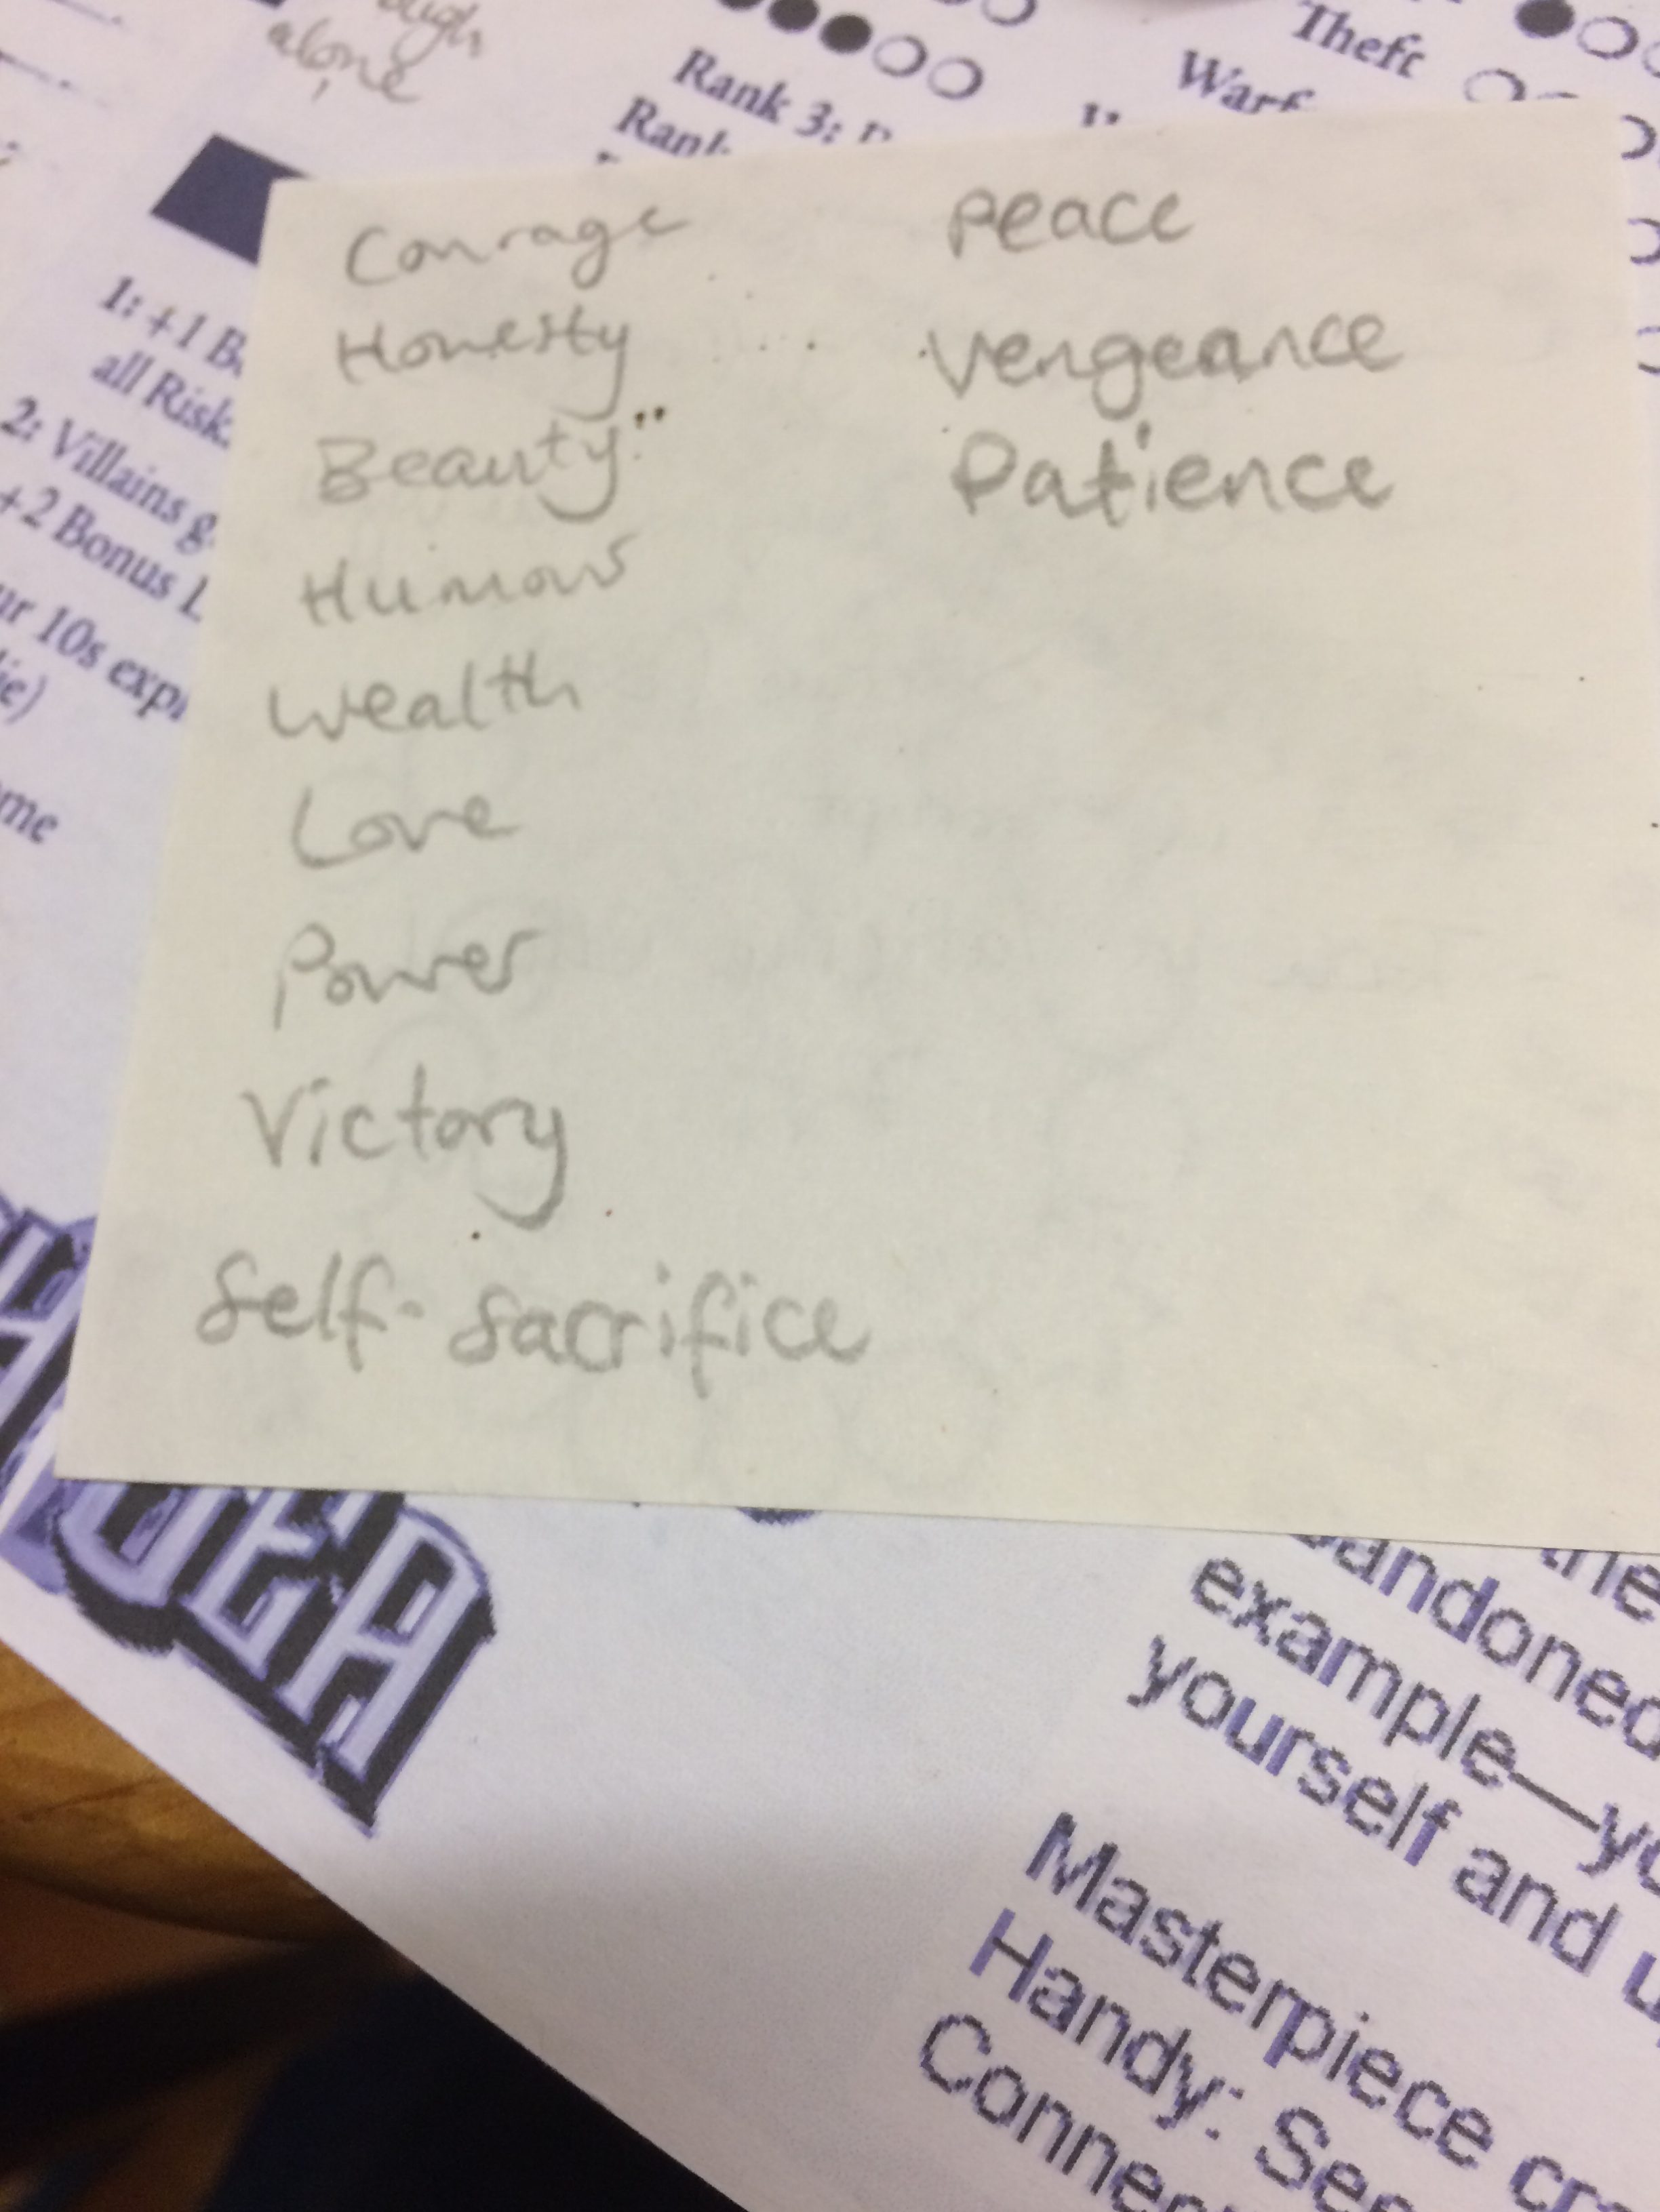 alone
Theft
Rank 3:
1: +1 B
all Risk
2: Villains g
+2 Bonus
10s exp
me
Courage
Honesty
Beauty
Humour
Wealth
Love
Power
Victory
Self-sacrifice
Peace
Vengeance
Patience
example—yo
yourself and u
Masterpiece cr
Handy: See
Connec